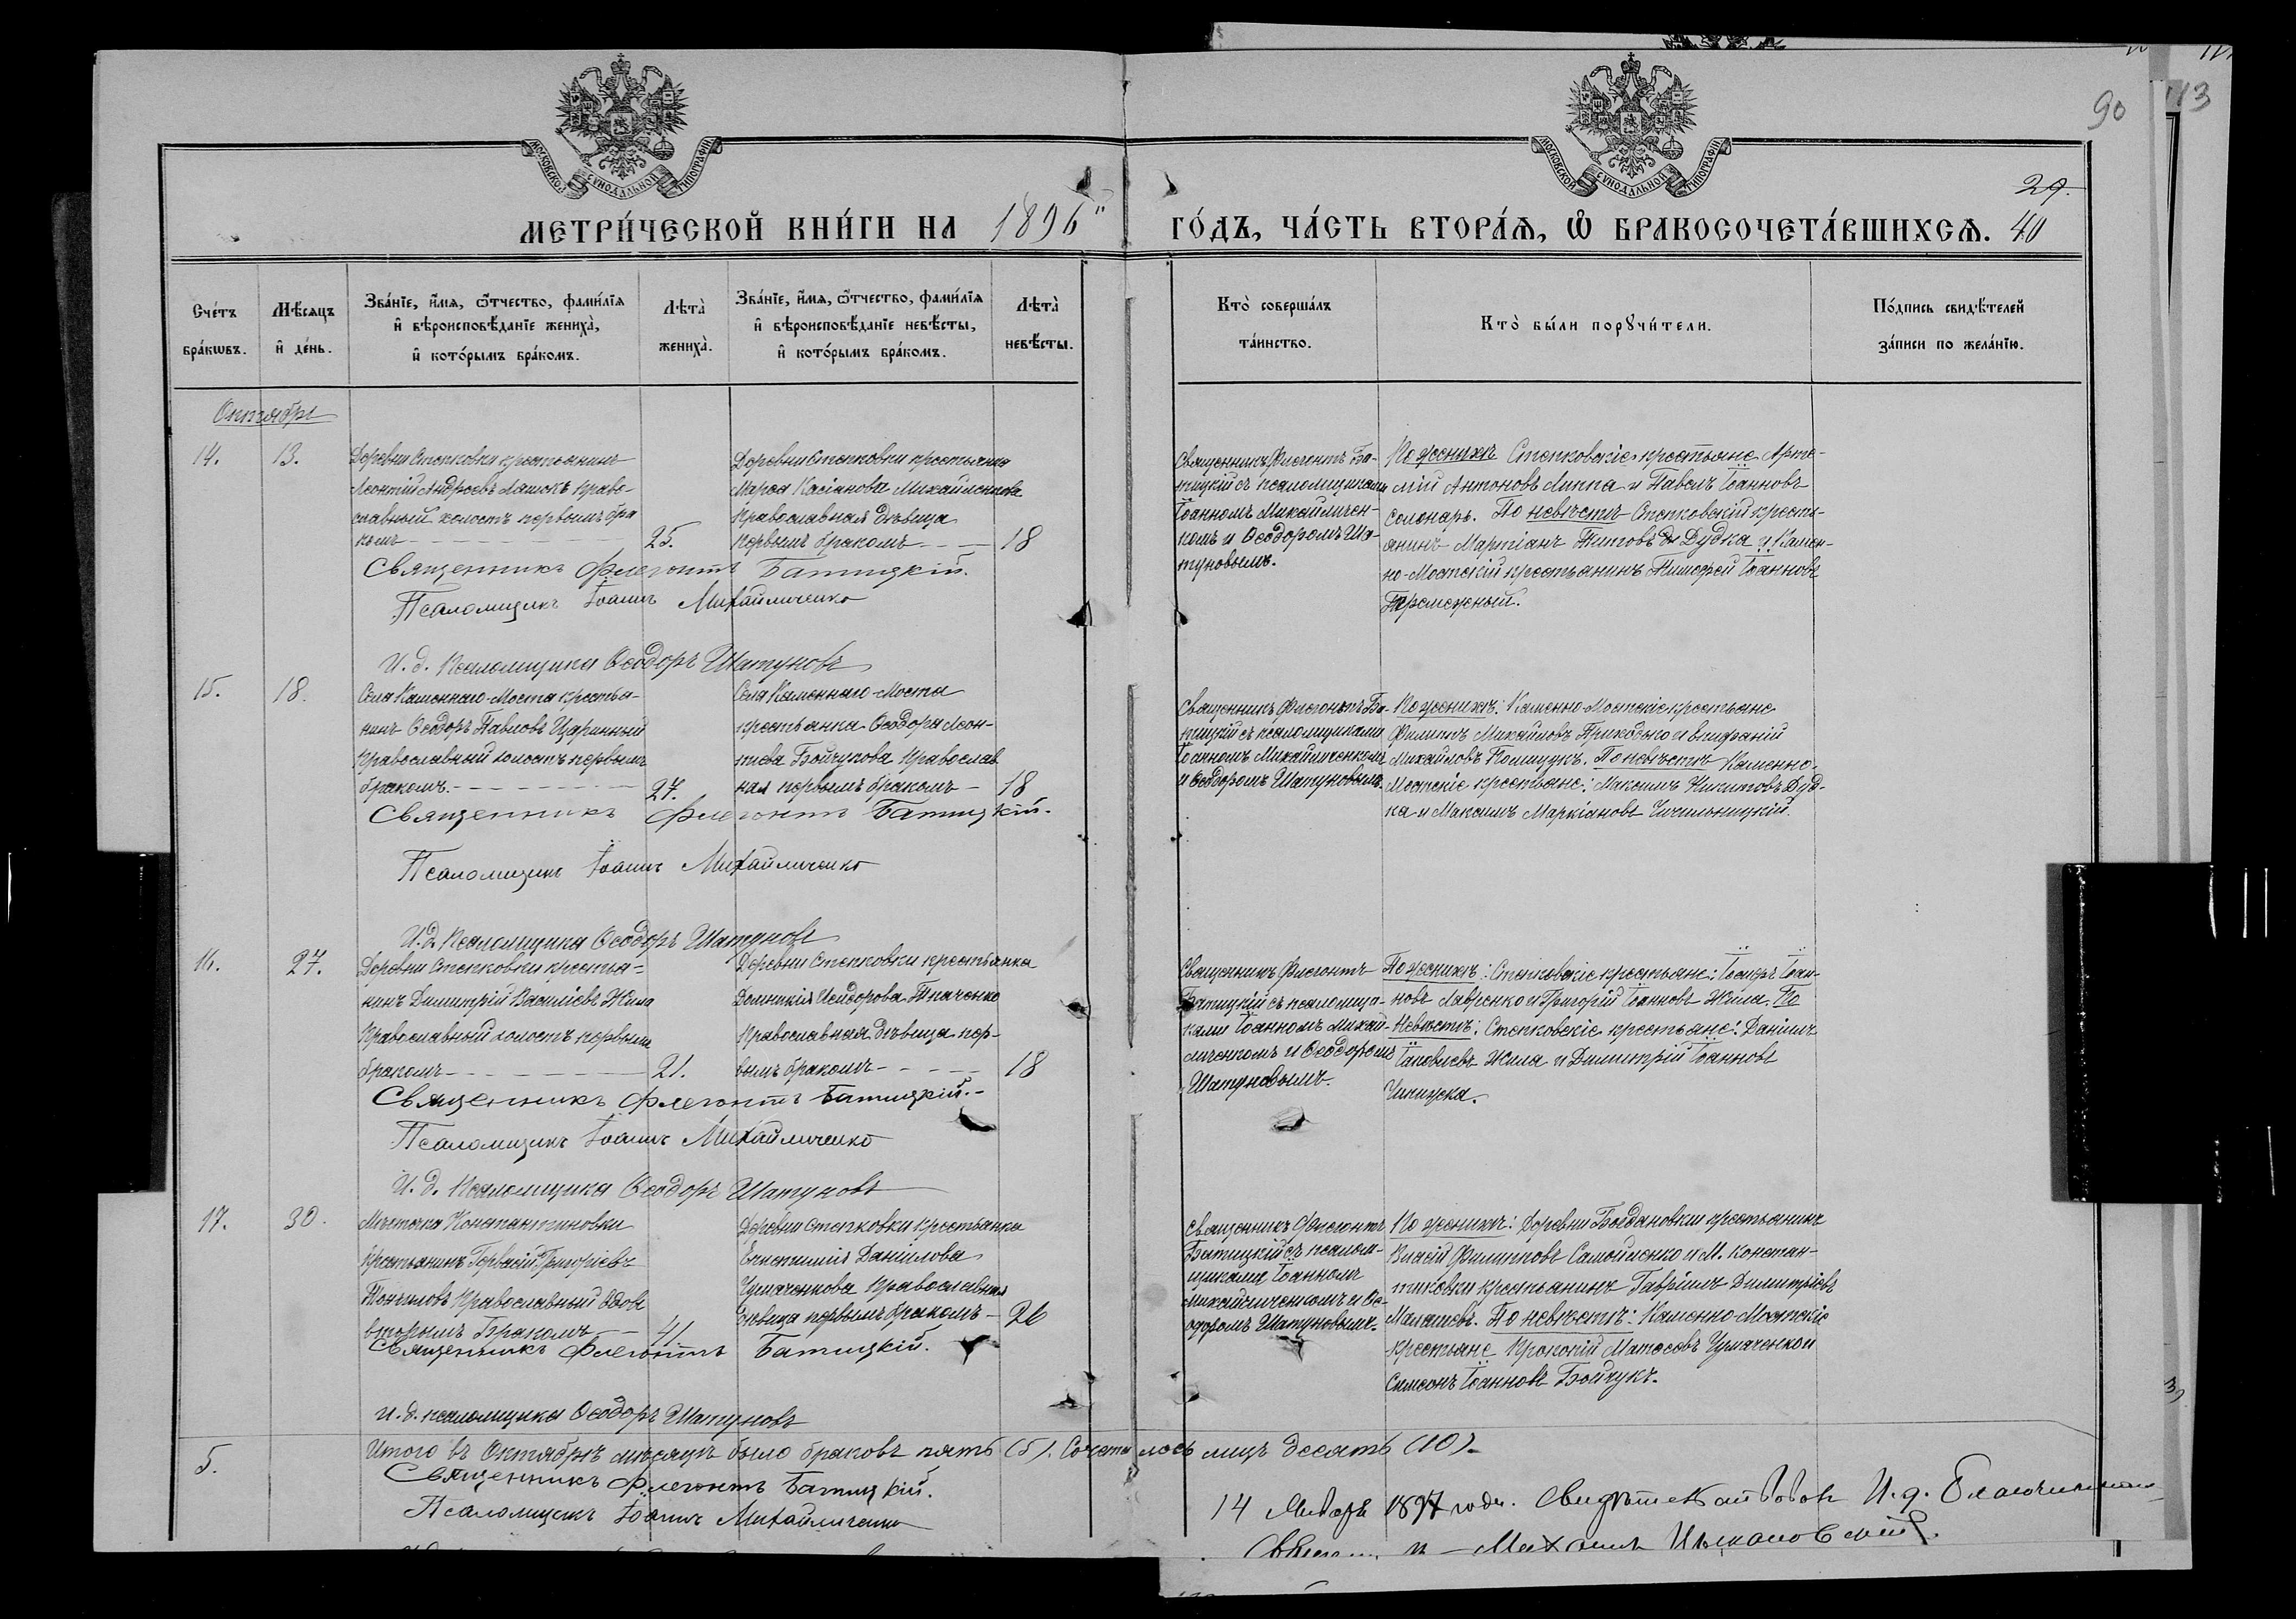 90
113
МОСКОВСКОЙ СѴНОДАЛЬНОЙ ТИПОГРАФІИ
МОСКОВСКОЙ СѴНОДАЛЬНОЙ ТИПОГРАФІИ
29.
МЕТРИ́ЧЕСКОЙ КНИ́ГИ НА 1896 ГО́ДЪ, ЧА́СТЬ ВТОРА́Ѧ, Ѡ БРАКОСОЧЕТА́ВШИХСѦ. 40
Сче́тъ бра́кωвъ.
Мѣ́сѧцъ и҆ де́нь.
Зва́нїе, и҆́мѧ, ѻ҆́тчество, фами́лїѧ и҆ вѣроисповѣ́данїе жениха̀, и҆ кото́рымъ бра́комъ.
Лѣта̀ жениха̀.
Зва́нїе, и҆́мѧ, ѻ҆́тчество, фами́лїѧ и҆ вѣроисповѣ́данїе невѣ́сты, и҆ кото́рымъ бра́комъ.
Лѣта̀ невѣ́сты.
Кто̀ соверша́лъ та́инство.
Кто̀ бы́ли порꙋчи́тели.
По́дпись свидѣ́телей за́писи по жела́нїю.
Октябрь
14. 13.
Деревни Степковки крестьянинъ
Леонтій Андреевъ Ляшокъ право-
славный холостъ первымъ бра
комъ 25.
Деревни Степковки крестьянка
Марѳа Касіанова Михайленкова
Православная дѣвица
первымъ бракомъ 18
Священникъ Флегонтъ Ба-
тицкій съ псаломщиками
Іоанномъ Михайличен-
комъ и Ѳеодоромъ Ша-
туновымъ.
По женихѣ Степковскіе крестьяне Арте-
мій Антоновъ Липпа и Павелъ Іоанновъ
Солонарь. По невѣстѣ Степковскій кресть-
янинъ Мартіанъ Титовъ Дудка и Камен-
но-Мостскій крестьянинъ Тимофей Іоанновъ
Священникъ Флегонтъ Батицкій.
Псаломщикъ Іоаннъ Михайличенко
И. д. псаломщика Ѳеодоръ Шатуновъ
15. 18.
Села Каменнаго-Моста крестья-
нинъ Ѳеодоръ Павловъ Царинный
Православный холостъ первымъ
бракомъ. 27.
Села Каменнаго-Моста
крестьянка Ѳеодора Леон-
тіева Бойчукова Православ
ная первымъ бракомъ 18
Священникъ Флегонтъ Ба-
тицкій съ псаломщиками
Іоанномъ Михайличенкомъ
и Ѳеодоромъ Шатуновымъ.
По женихѣ: Каменно-Мостскіе крестьяне
Филиппъ Михайловъ Приходько и Епифаній
Михайловъ Полищукъ. По невѣстѣ Каменно-
Мостскіе крестьяне: Максимъ Никитовъ Дуд-
ка и Максимъ Маркіановъ Чичильницкій.
Священникъ Флегонтъ Батицкій.
Псаломщикъ Іоаннъ Михайличенко
И. д. Псаломщика Ѳеодоръ Шатуновъ
16. 27.
Деревни Степковки крестья-
нинъ Димитрій Василіевъ Жила
Православный холостъ первымъ
бракомъ 21.
Деревни Степковки крестьянка
Домникія Исидорова Ткаченко
Православная дѣвица пер-
вымъ бракомъ 18
Священникъ Флегонтъ
Батицкій съ псаломщи-
ками Іоанномъ Михай-
личенкомъ и Ѳеодоромъ
Шатуновымъ.
По женихѣ: Степковскіе крестьяне: Іосифъ Іоан-
новъ Лавренко и Григорій Іоанновъ Жила. По
Невѣстѣ: Степковскіе крестьяне: Даніилъ
Іаковлевъ Жила и Димитрій Іоанновъ
Священникъ Флегонтъ Батицкій.
Псаломщикъ Іоаннъ Михайличенко
И. д. Псаломщика Ѳеодоръ Шатуновъ
17. 30.
Мѣстечка Константиновки
Крестьянинъ Гервасій Григоріевъ
Православный вдовъ
вторымъ Бракомъ 41
Деревни Степковки Крестьянка
Даніилова
Чумаченкова Православная
дѣвица первымъ бракомъ 26
Священникъ Флегонтъ
Батицкій съ псалом-
щиками Іоанномъ
Михайличенкомъ и Ѳе-
одоромъ Шатуновымъ.
По женихѣ: Деревни Богдановки крестьянинъ
Власій Филипповъ Самойленко и М. Констан-
тиновки крестьянинъ Гавріилъ Димитріевъ
Малашевъ. По невѣстѣ: Каменно-Мостскіе
крестьяне Прокопій Матѳеевъ Чумаченко и
Симеонъ Іоанновъ Бойчукъ.
Священникъ Флегонтъ Батицкій.
И. д. псаломщика Ѳеодоръ Шатуновъ
5. Итого въ Октябрѣ мѣсяцѣ было браковъ пять (5). Сочеталось лицъ десять (10).
Священникъ Флегонтъ Батицкій.
Псаломщикъ Іоаннъ Михайличенко
14 Января 1897 года. И. д.